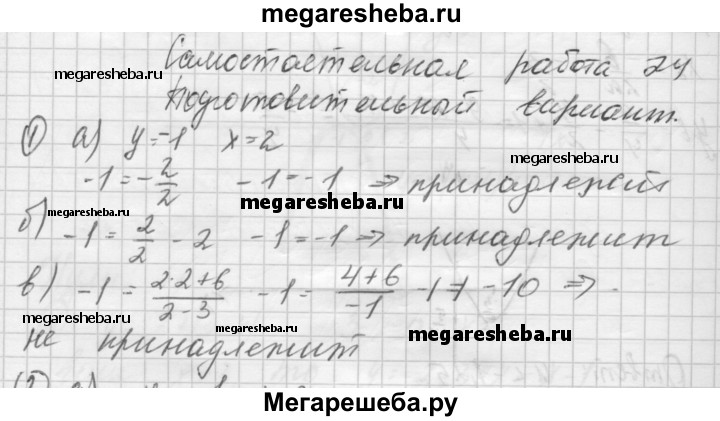 megaresheba.ru
Самостоятельная работа 24
megaresheba.ru
Подготовительный вариант.
① а) y=-1 x=2
megaresheba.ru
-1=-2/2 -1=-1 ⇒ принадлежит
megaresheba.ru
megaresheba.ru
б) -1=2/2-2 -1=-1 ⇒ принадлежит
в) -1=(2·2+6)/(2-3) -1=(4+6)/-1 -1≠-10 ⇒
megaresheba.ru
megaresheba.ru
megaresheba.ru
не принадлежит
Мегарешеба.ру